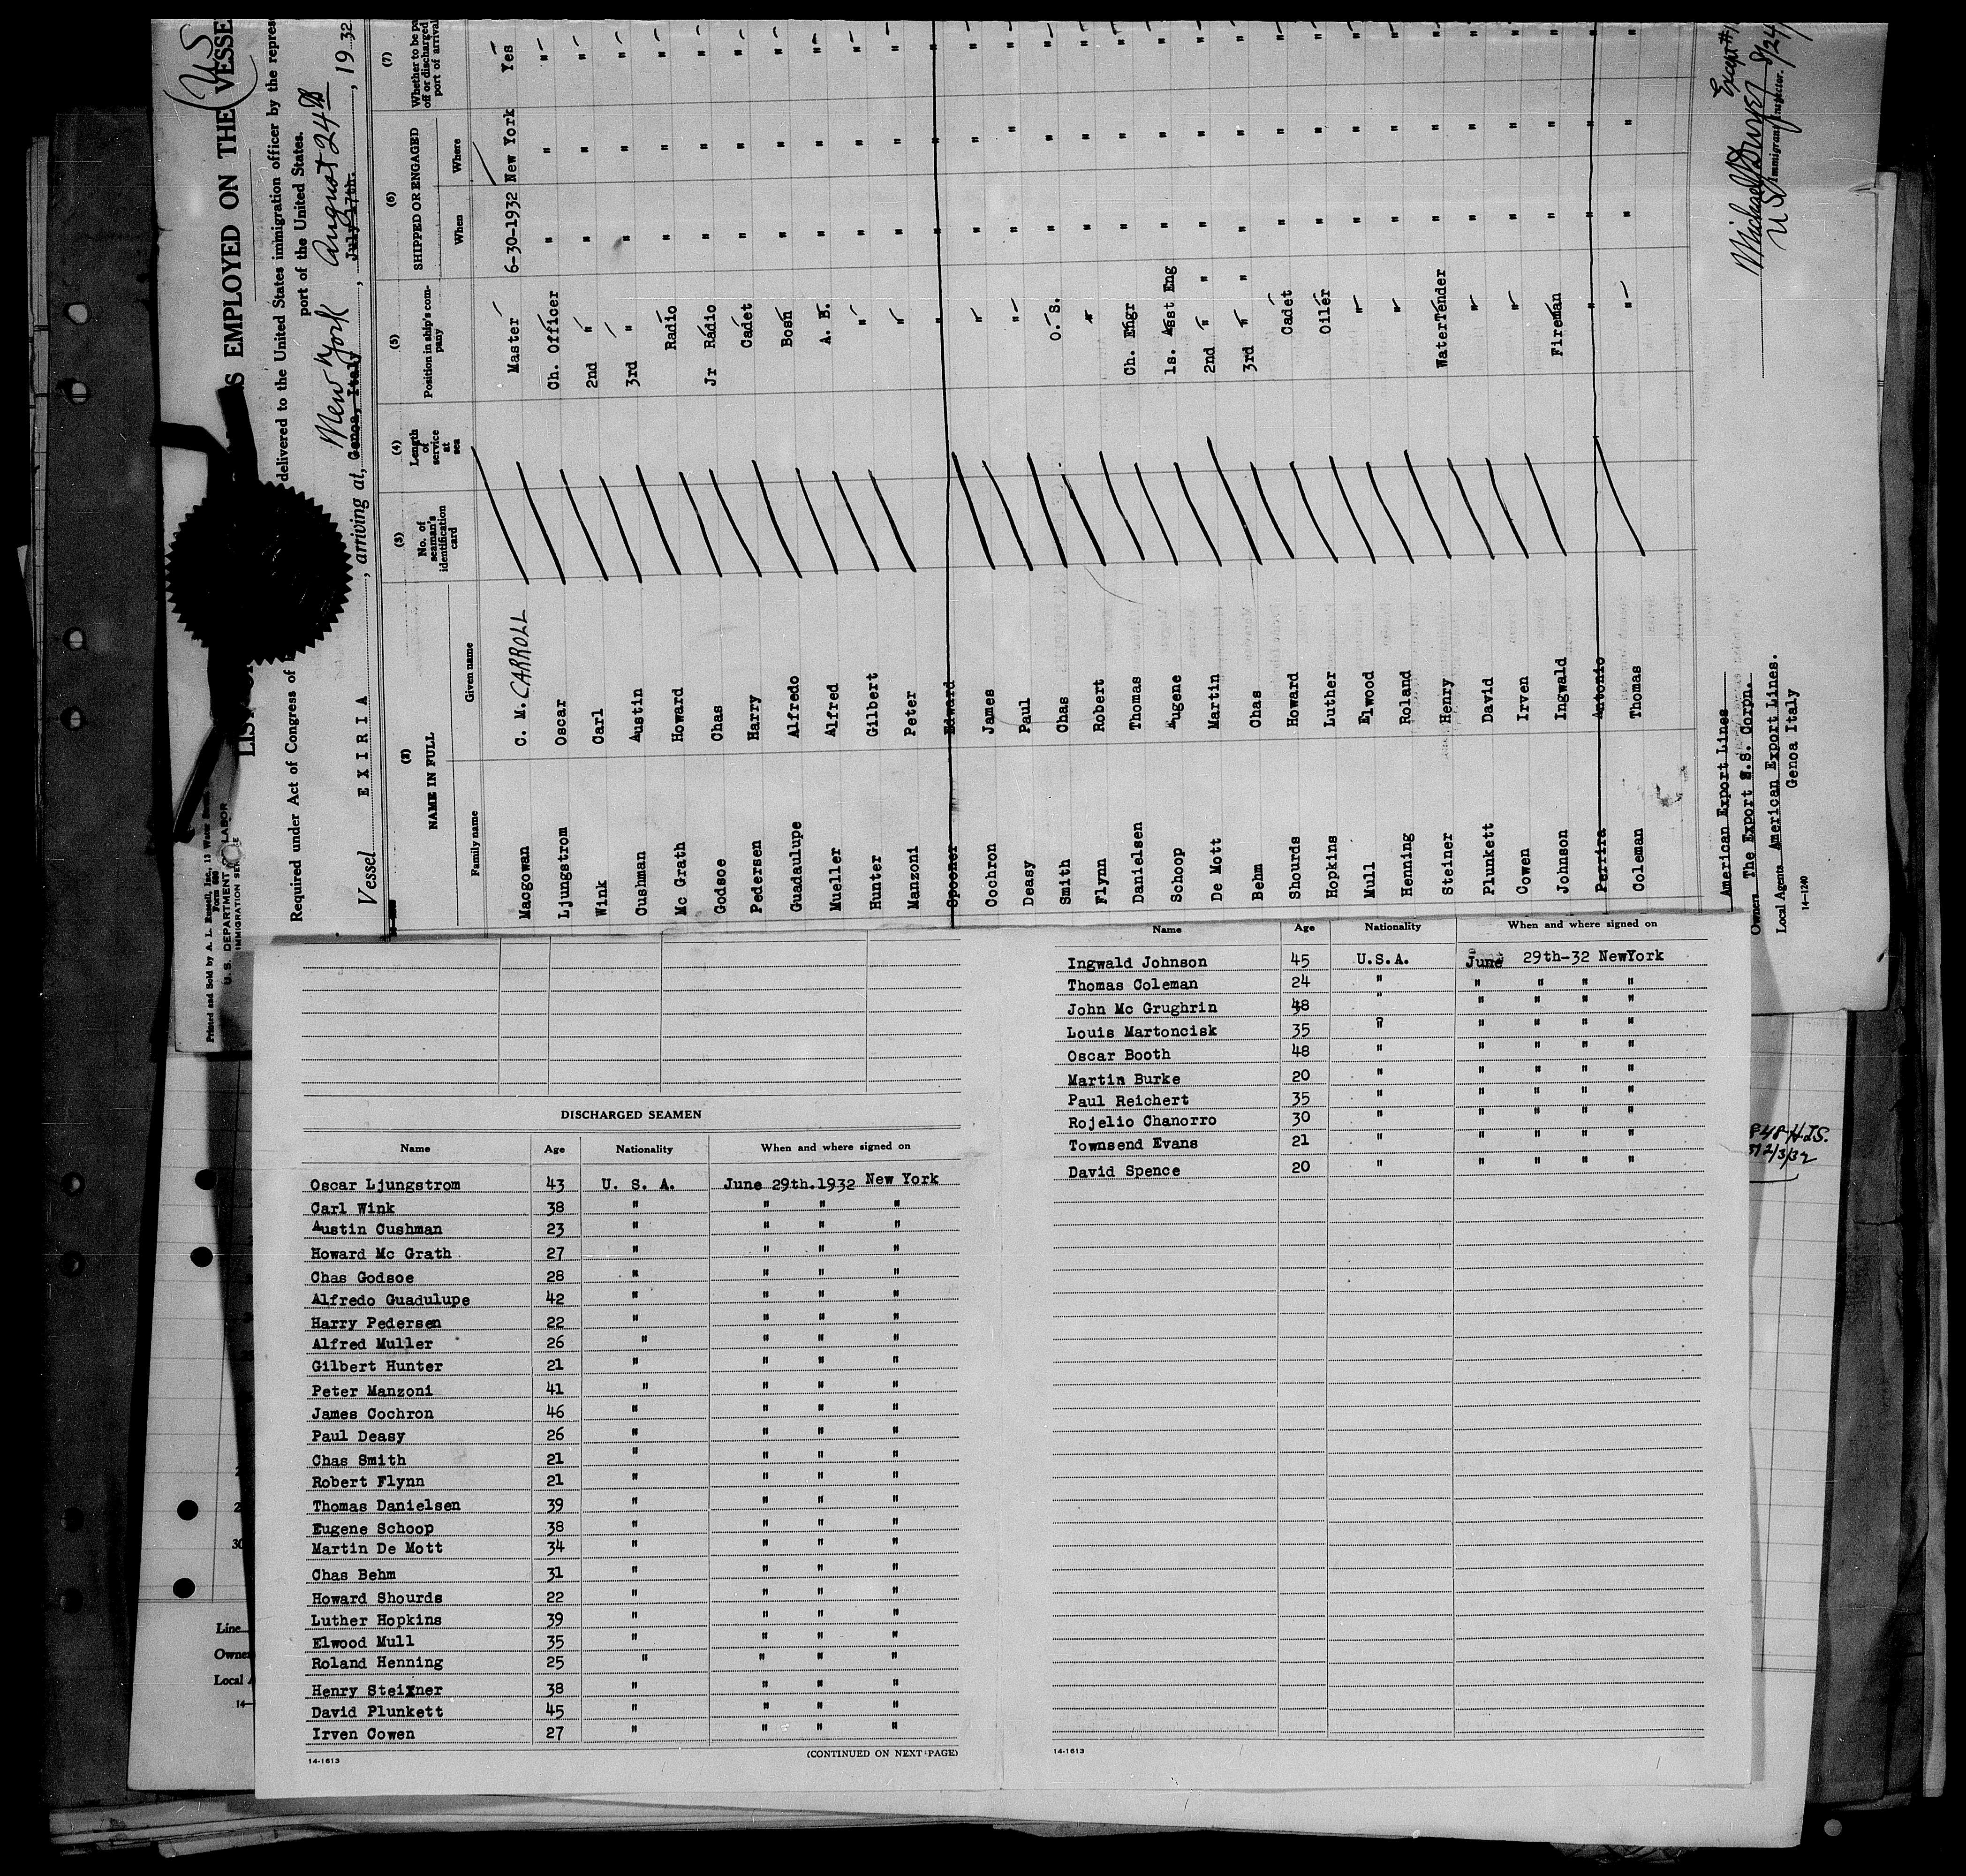 US
EMPLOYED ON THE VESSE
Required under Act of Congress of
delivered to the United States immigration officer by the repres
port of the United States.
Vessel EXIRIA, arriving at, Genoa, Italy New York, July 17th. August 24th, 1932
Printed and Sold by A. L. Russell, Inc., 13 Water Street
Form 680
U. S. DEPARTMENT OF LABOR
IMMIGRATION SERVICE
(2) (3) (4) (5) (6) (7)
NAME IN FULL No. of seaman's identification card Length of service at sea Position in ship's company SHIPPED OR ENGAGED Whether to be pa off or discharged port of arrival
Family name Given name When Where
Macgowan C. M. CARROLL Master 6-30-1932 New York Yes
Ljungstrom Oscar Ch. Officer " " "
Wink Carl 2nd " " " "
Cushman Austin 3rd " " " "
Mc Grath Howard Radio " " "
Godsoe Chas Jr Radio " " "
Pedersen Harry Cadet " " "
Guadaulupe Alfredo Bosn " " "
Mueller Alfred A. B. " " "
Hunter Gilbert " " " "
Manzoni Peter " " " "
Spooner Edward " " " "
Cochron James " " " "
Deasy Paul " " " "
Smith Chas O. S. " " "
Flynn Robert " " " "
Danielsen Thomas Ch. Engr " " "
Schoop Eugene 1s. Asst Eng " " "
De Mott Martin 2nd " " " " "
Behm Chas 3rd " " " " "
Shourds Howard Cadet " " "
Hopkins Luther Oiler " " "
Mull Elwood " " " "
Henning Roland " " " "
Steiner Henry WaterTender " " "
Plunkett David " " " "
Cowen Irven " " " "
Johnson Ingwald Fireman " " "
Perrira Antonio " " " "
Coleman Thomas " " " "
American Export Lines
Owners The Export S.S. Corpn.
Local Agents American Export Lines.
Genoa Italy
14-1240
Except #
8/24/
Immigrant Inspector.
DISCHARGED SEAMEN
Name Age Nationality When and where signed on
Oscar Ljungstrom 43 U. S. A. June 29th.1932 New York
Carl Wink 38 " " " "
Austin Cushman 23 " " " "
Howard Mc Grath 27 " " " "
Chas Godsoe 28 " " " "
Alfredo Guadulupe 42 " " " "
Harry Pedersen 22 " " " "
Alfred Muller 26 " " " "
Gilbert Hunter 21 " " " "
Peter Manzoni 41 " " " "
James Cochron 46 " " " "
Paul Deasy 26 " " " "
Chas Smith 21 " " " "
Robert Flynn 21 " " " "
Thomas Danielsen 39 " " " "
Eugene Schoop 38 " " " "
Martin De Mott 34 " " " "
Chas Behm 31 " " " "
Howard Shourds 22 " " " "
Luther Hopkins 39 " " " "
Elwood Mull 35 " " " "
Roland Henning 25 " " " "
Henry Steixner 38 " " " "
David Plunkett 45 " " " "
Irven Cowen 27 " " " "
14-1613 (CONTINUED ON NEXT PAGE)
Name Age Nationality When and where signed on
Ingwald Johnson 45 U.S.A. June 29th-32 NewYork
Thomas Coleman 24 " " " " "
John Mc Grughrin 48 " " " " "
Louis Martoncisk 35 " " " " "
Oscar Booth 48 " " " " "
Martin Burke 20 " " " " "
Paul Reichert 35 " " " " "
Rojelio Chanorro 30 " " " " "
Townsend Evans 21 " " " " "
David Spence 20 " " " " "
14-1613
30
Line
Owne
Local A
14-